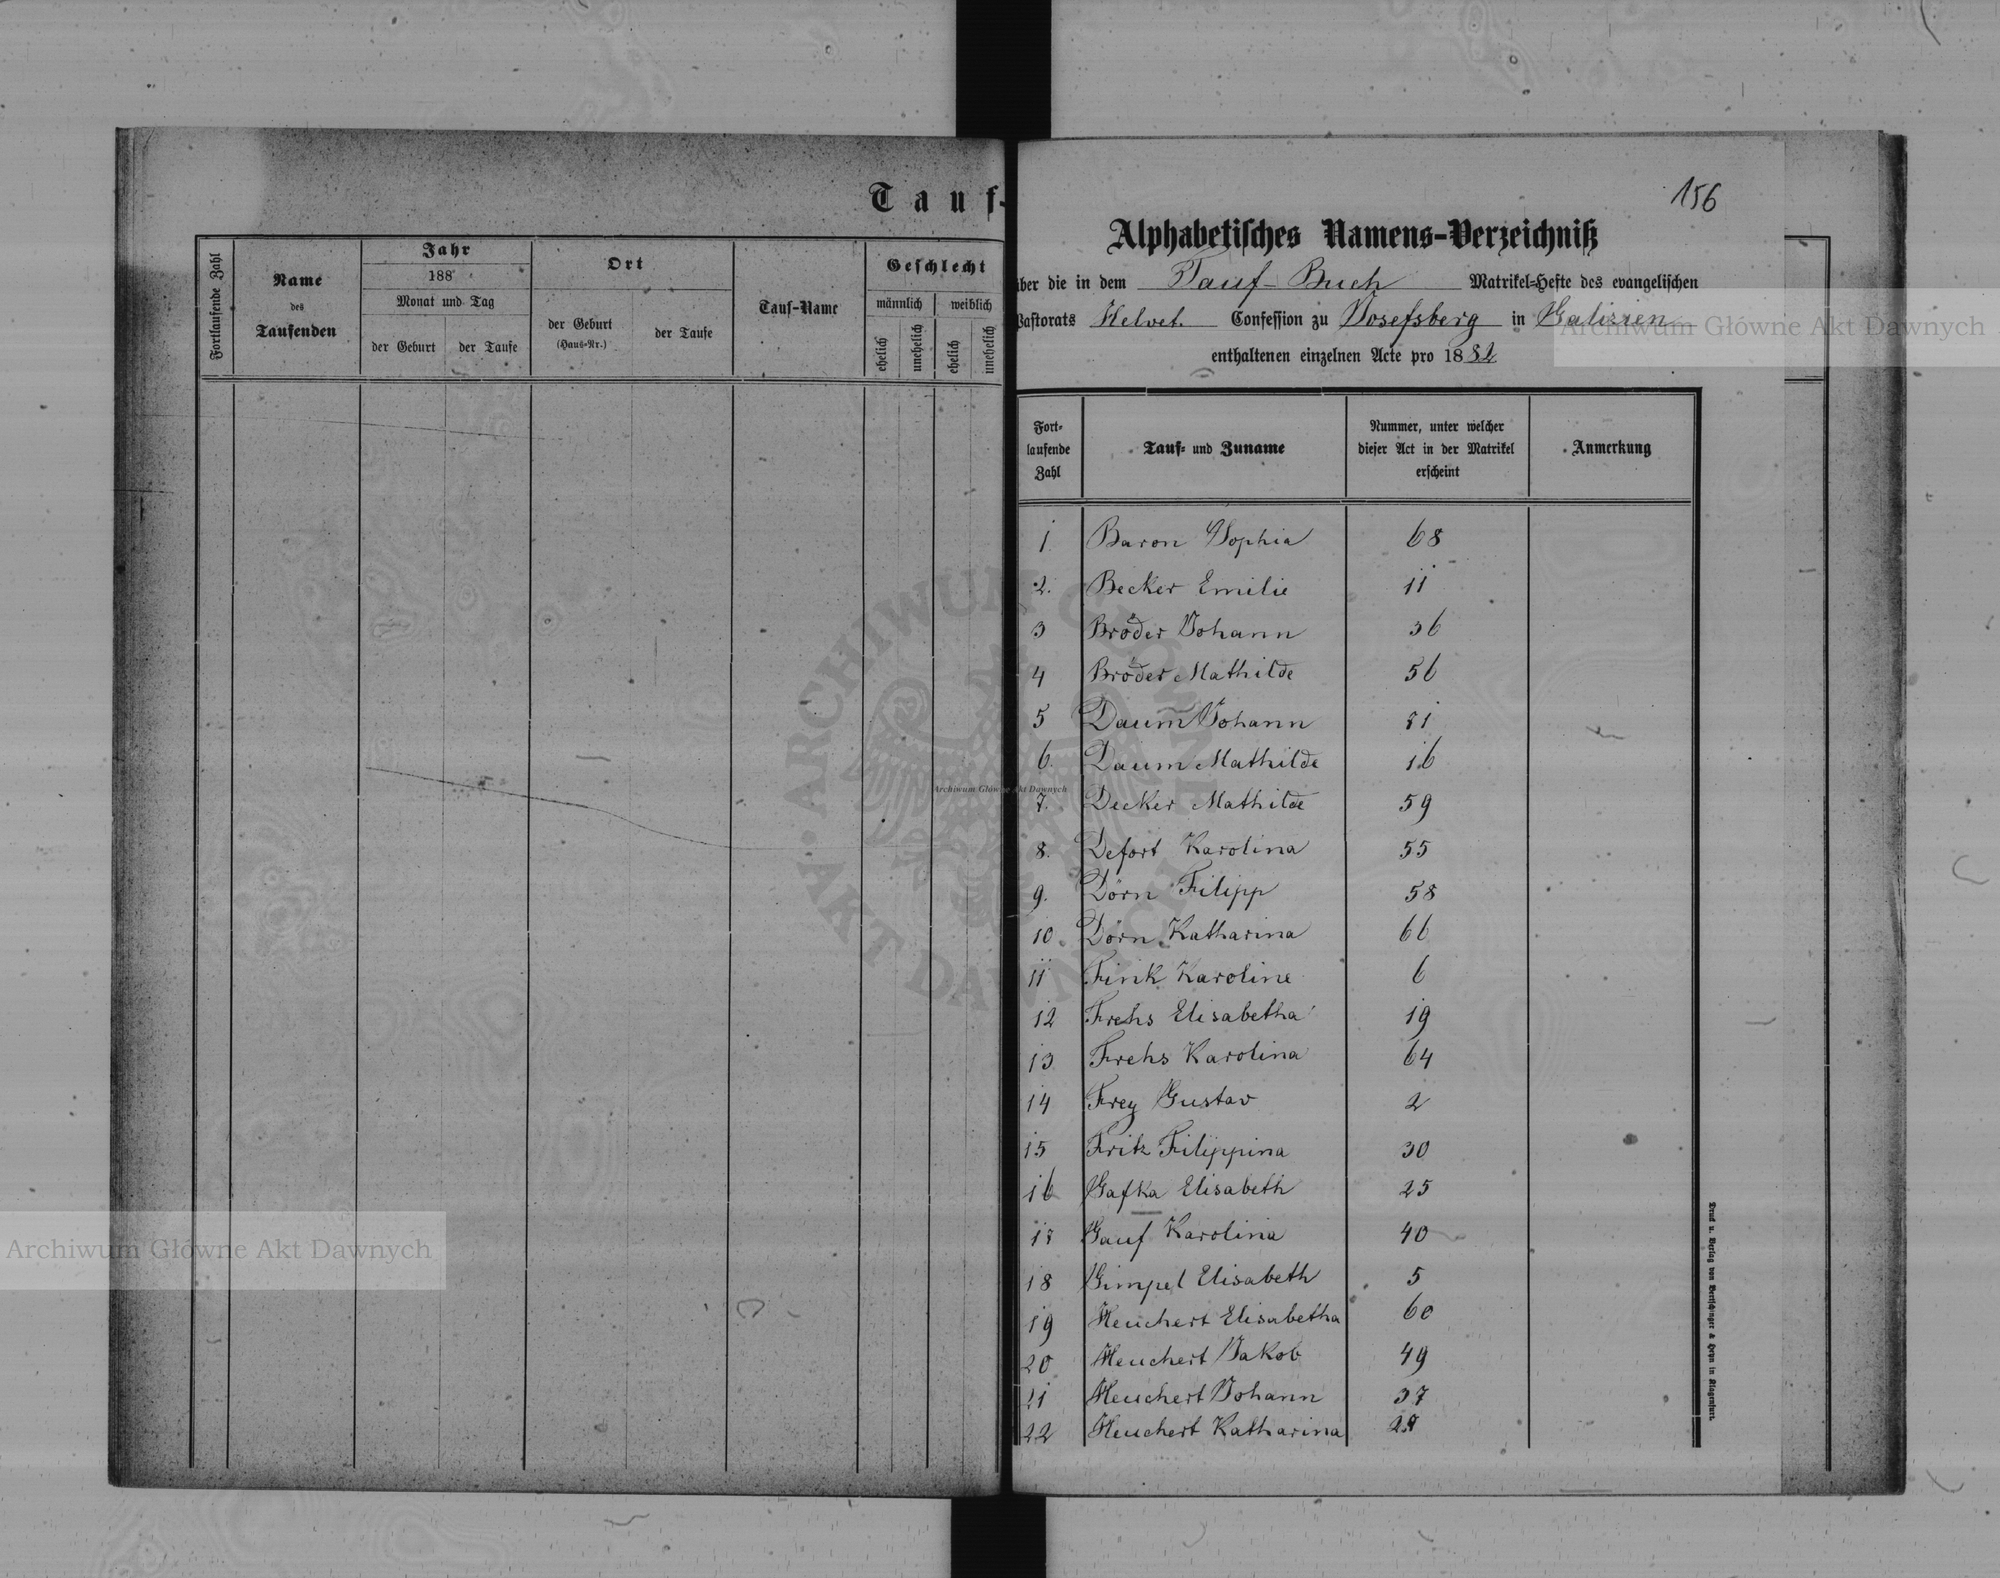 Tauf-
Fortlaufende Zahl
Name
des
Taufenden
Jahr
188
Monat und Tag
der Geburt
der Taufe
Ort
der Geburt
(Haus-Nr.)
der Taufe
Tauf-Name
Geschlecht
männlich
weiblich
ehelich
unehelich
ehelich
unehelich
156
Alphabetisches Namens-Verzeichniß
über die in dem Tauf-Buch Matrikel-Hefte des evangelischen
Pastorats Helvet. Confession zu Josefsberg in Galizien
enthaltenen einzelnen Acte pro 1882
Fort-
laufende
Zahl
Tauf- und Zuname
Nummer, unter welcher
dieser Act in der Matrikel
erscheint
Anmerkung
1 Baron Sophia 68
2. Becker Emilie 11
3 Bröder Johann 36
4 Bröder Mathilde 56
5 Daum Johann
6. Daum Mathilde 16
7. Decker Mathilde 59
8. Defort Karolina 55
9. Dörn Filipp 58
10. Dörn Katharina 66
11 Fink Karoline 6
12 Frehs Elisabetha 19
13 Frehs Karolina 64
14 Frey Gustav 2
15 Fritz Filippina 30
16 Gafka Elisabeth 25
17 Gauf Karolina 40
18 Gimpel Elisabeth 5
19 Heuchert Elisabetha 60
20 Heuchert Jakob 49
21 Heuchert Johann 37
22 Heuchert Katharina 28
Druck u. Verlag von Bertschinger & Heyn in Klagenfurt.
Archiwum Główne Akt Dawnych
Archiwum Główne Akt Dawnych
Archiwum Główne Akt Dawnych
ARCHIWUM GŁÓWNE
AKT DAWNYCH